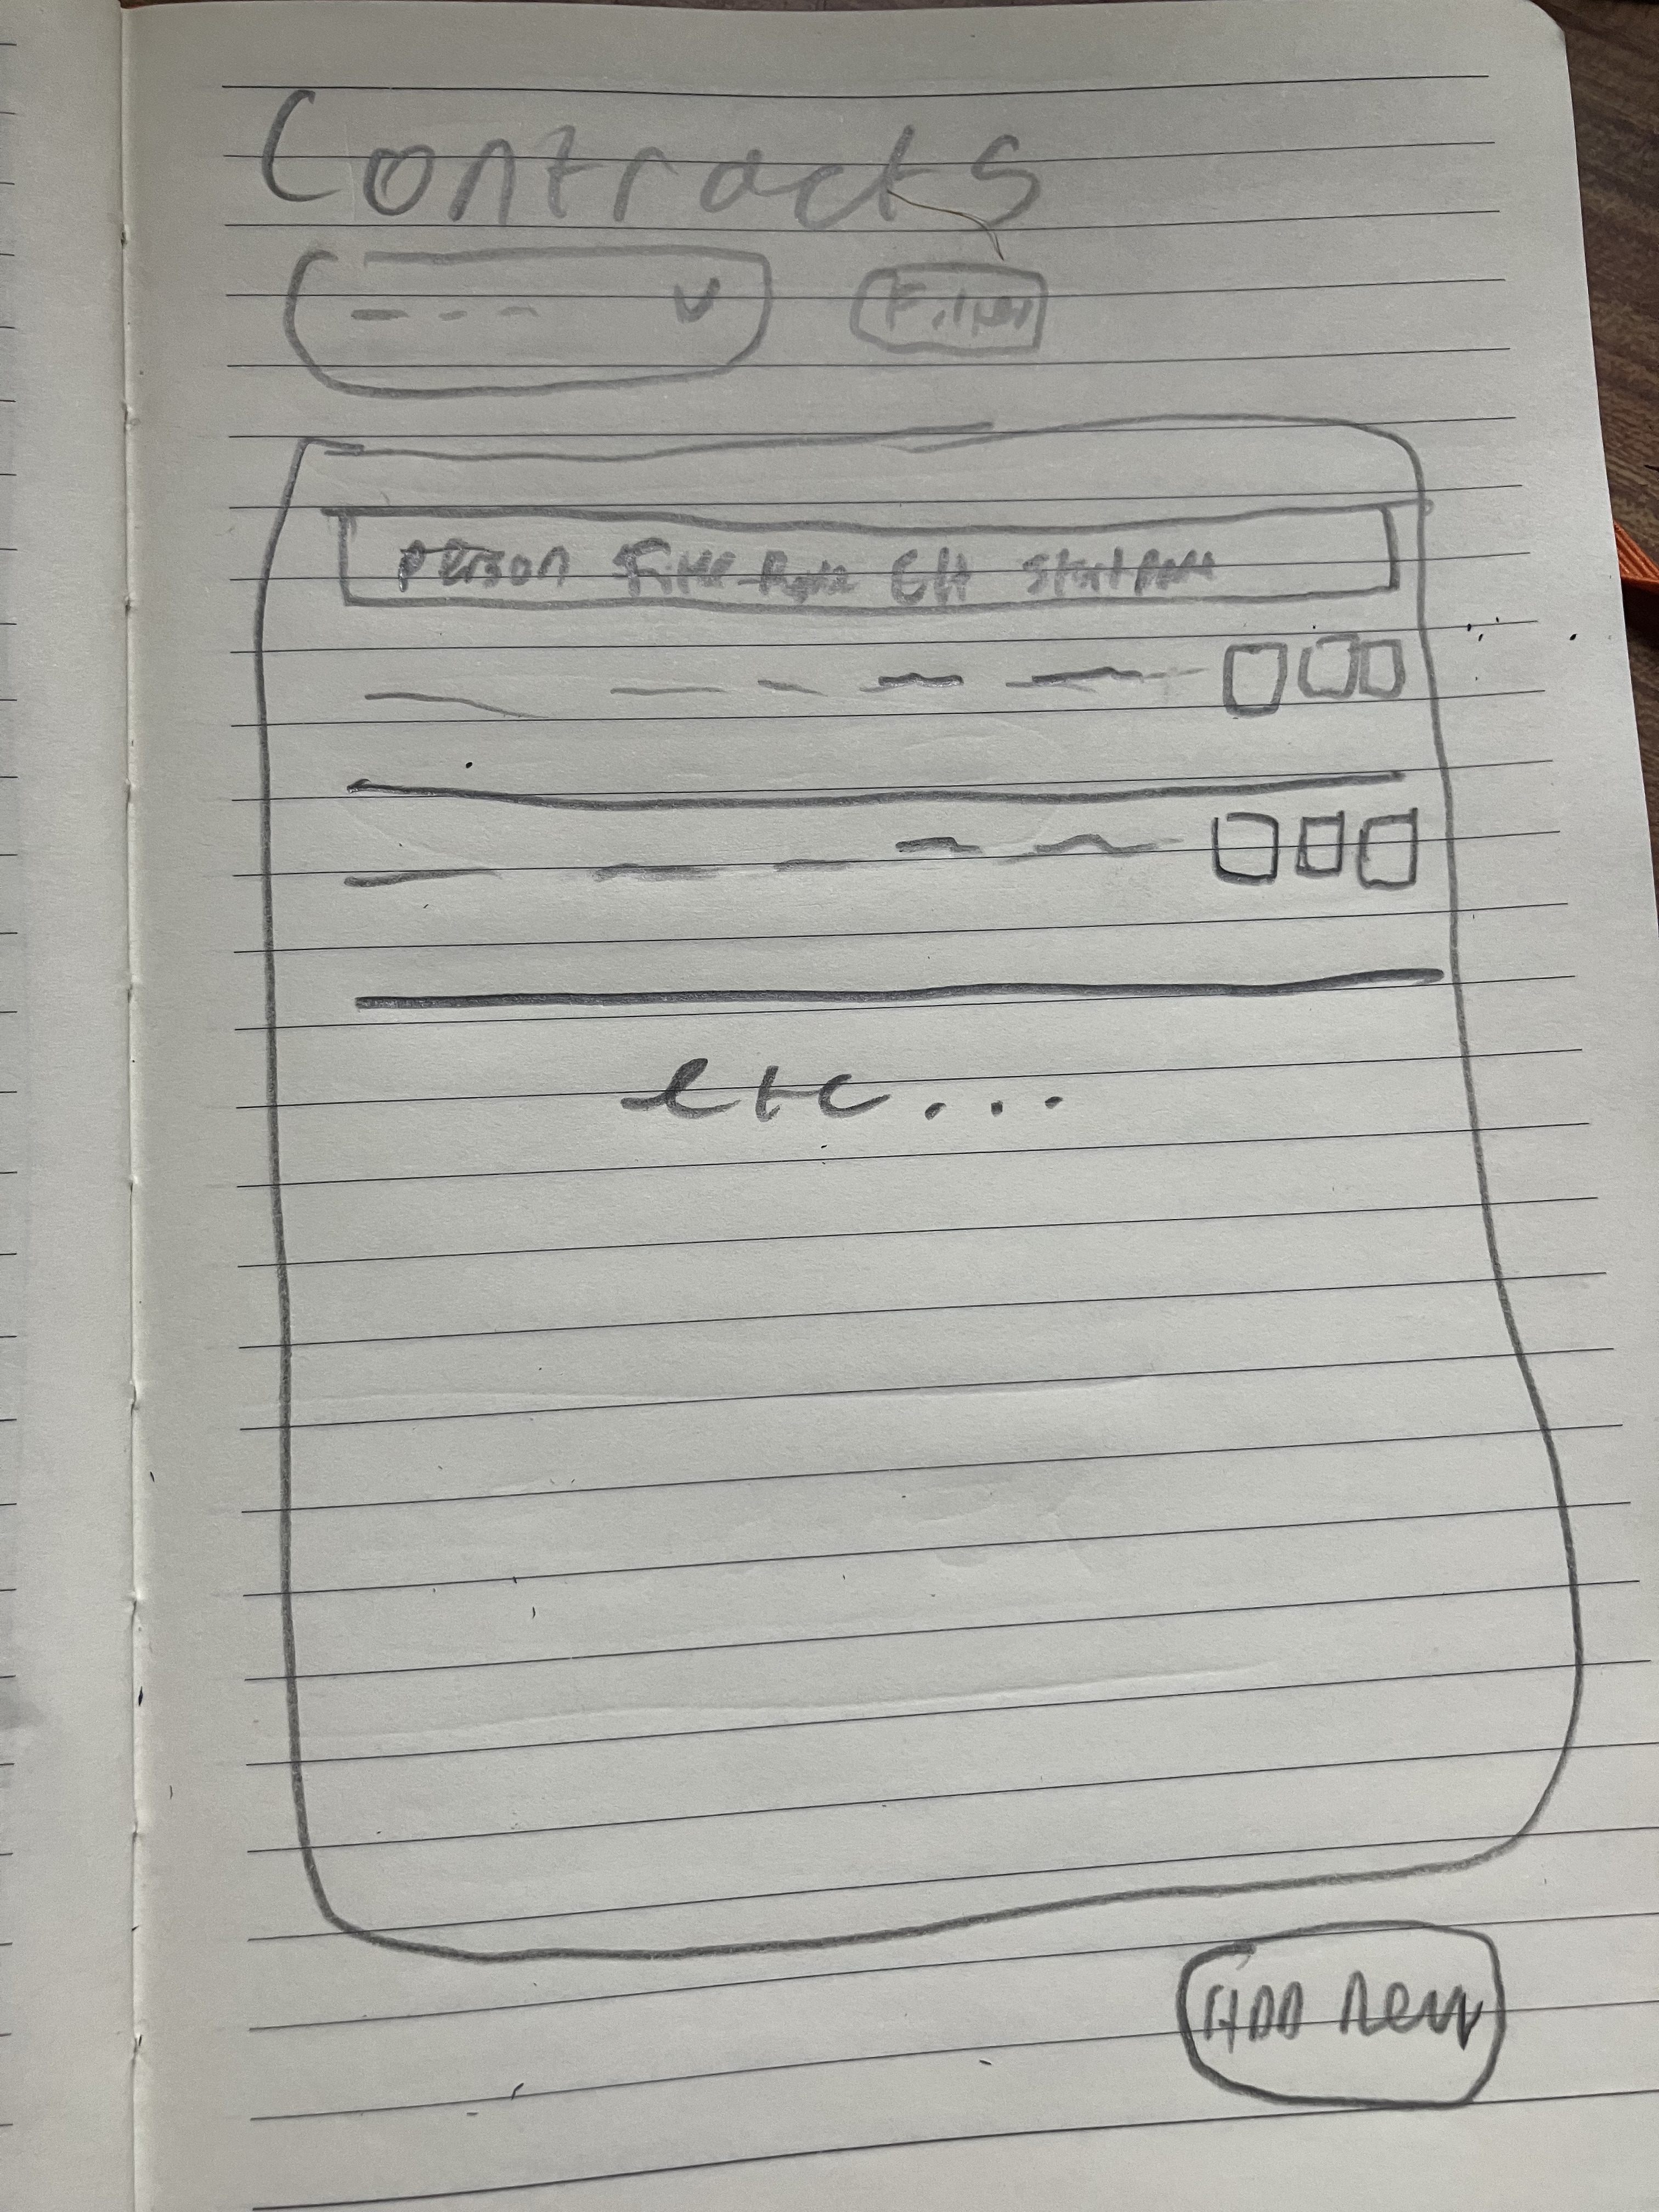 Contracts
Filter
Person Title Rate Start Date
etc...
ADD new